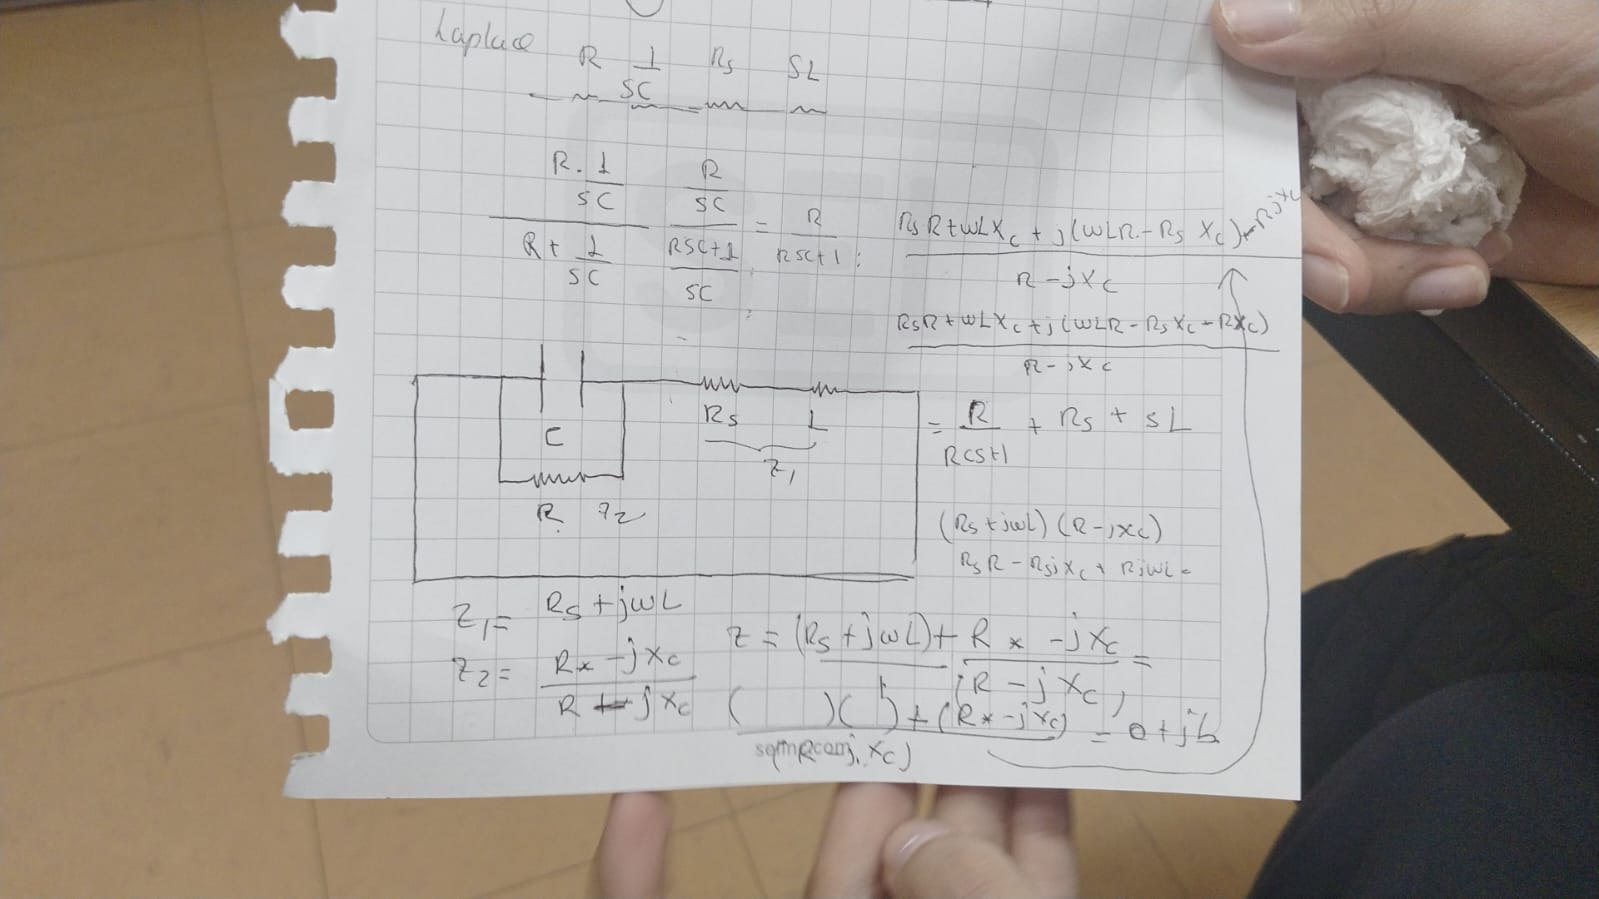 Laplace
R 1/SC Rs SL
R . 1/SC / R + 1/SC
R/SC / RSC+1/SC = R / RSC+1
RsR+wLXc + j(wLR - Rs Xc) - RjXc
R - jXc
RsR + wLXc + j(wLR - RsXc - RXc)
R - jXc
C
R
Z2
Rs L
Z1
= R / RCS+1 + Rs + SL
(Rs + jwL) (R - jXc)
RsR - RsjXc + RjwL -
Z1 = Rs + jwL
Z2 = R* -jXc / R - jXc
Z = (Rs + jwL) + R * -jXc / R - jXc =
( )( ) + (R* -jXc) = a + jb